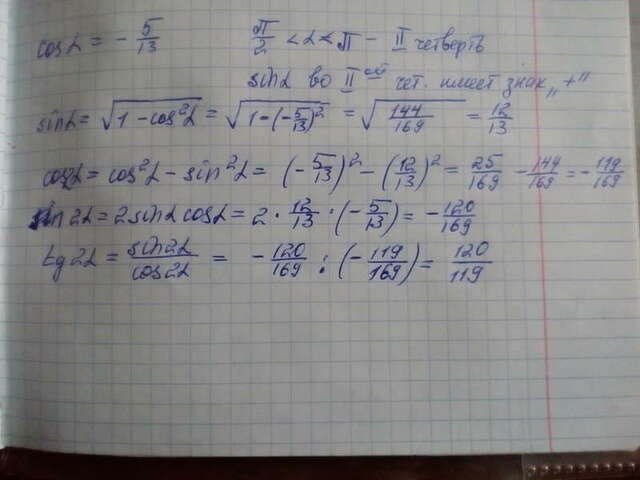 cosα = - 5/13    π/2 < α < π - II четверть
sinα во II ой чет. имеет знак „+"
sinα = √(1 - cos²α) = √(1-(-5/13)²) = √(144/169) = 12/13
cos2α = cos²α - sin²α = (-5/13)² - (12/13)² = 25/169 - 144/169 = - 119/169
sin 2α = 2 sinα cosα = 2 · 12/13 · (-5/13) = - 120/169
tg 2α = sin2α/cos2α = - 120/169 : (- 119/169) = 120/119